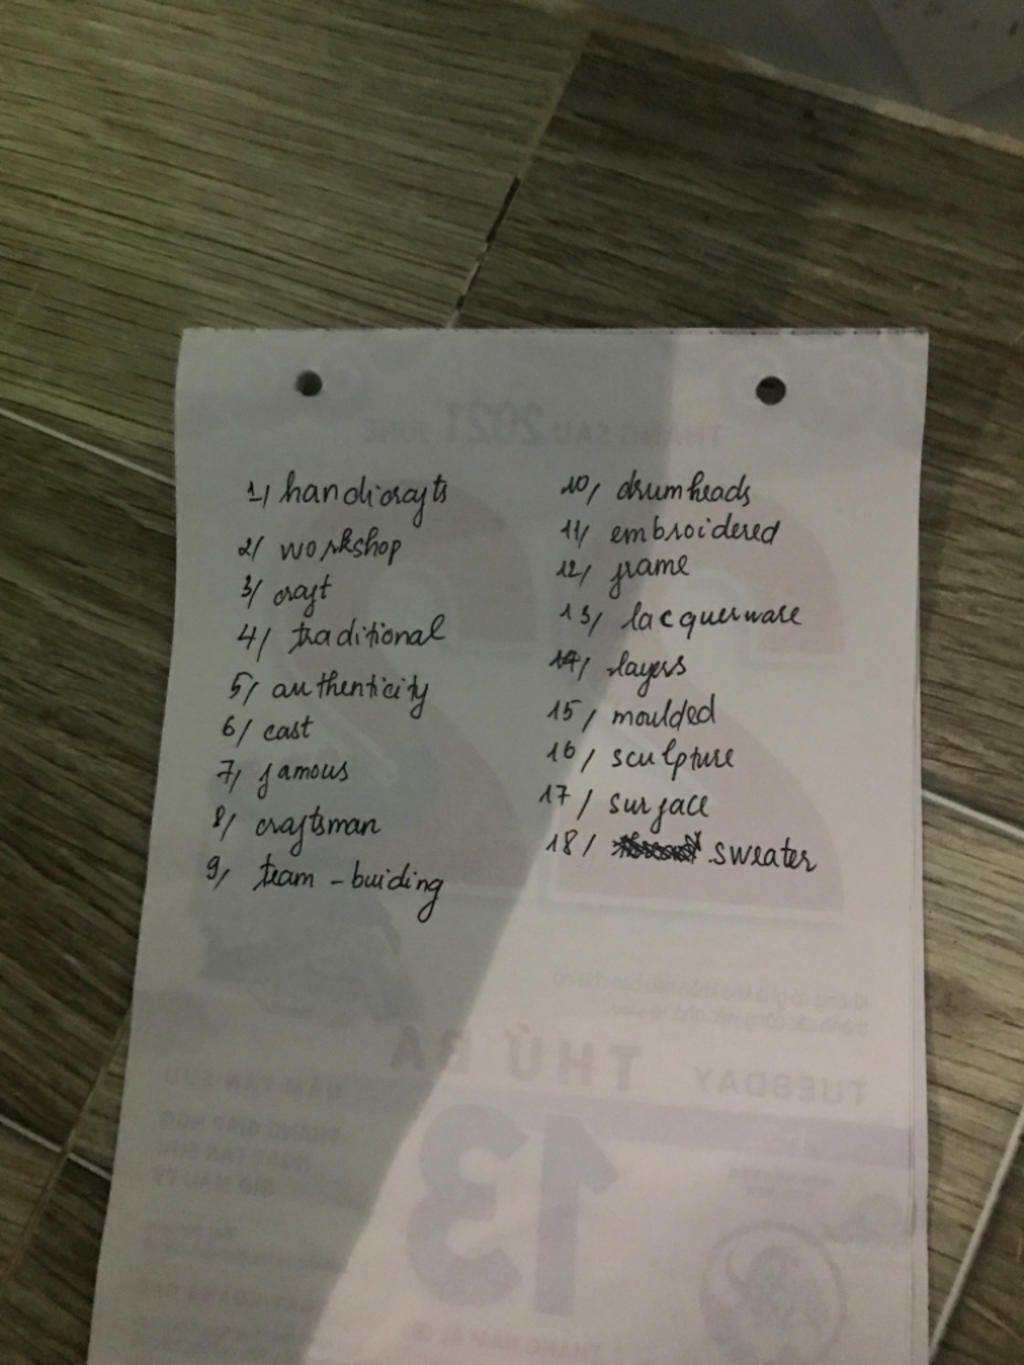 1/ handicrafts
2/ workshop
3/ craft
4/ traditional
5/ authenticity
6/ cast
7/ famous
8/ craftsman
9/ team-buiding
10/ drumheads
11/ embroidered
12/ frame
13/ lacquerware
14/ layers
15/ moulded
16/ sculpture
17/ surface
18/ sweater
THÁNG SÁU 2021 JUNE
TUESDAY THỨ BA
13